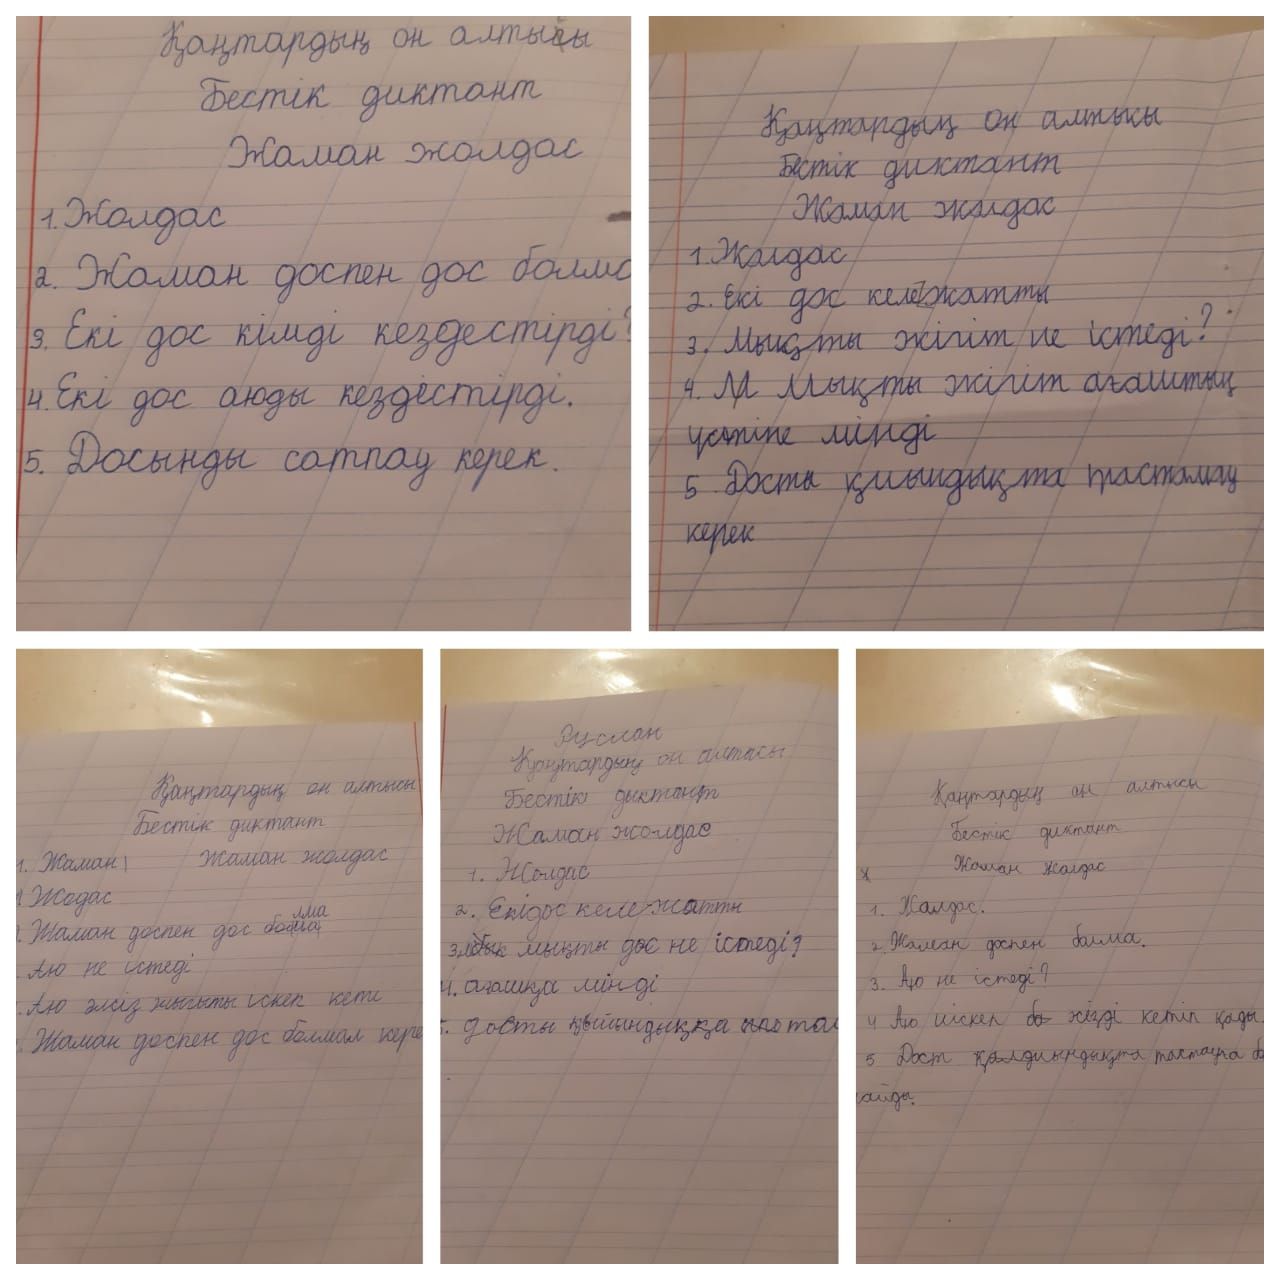 Қаңтардың он алтысы
Бестік диктант
Жаман жолдас
1. Жолдас
2. Жаман доспен дос болма
3. Екі дос кімді кездестірді?
4. Екі дос аюды кездестірді.
5. Досынды сатпау керек.
Қаңтардың он алтысы
Бестік диктант
Жаман жолдас
1. Жолдас
2. Екі дос кележатты
3. Мықты жігіт не істеді?
4. Мықты жігіт ағаштың
үстіне мінді
5. Досты қиындықта тастамау
керек
Қаңтардың он алтысы
Бестік диктант
1. Жаман Жаман жолдас
Жодас
Жаман доспен дос болма
Аю не істеді
Аю әлсіз іскеп кеті
Жаман доспен дос болмал кере
Руслан
Қаңтардың он алтысы
Бестік дыктант
Жаман жолдас
1. Жолдас
2. Екідос кележатты
3. мықты дос не істеді?
4. ағашқа мінді
5. досты қыйындыққа
Қаңтардың он алтысы
Бестік диктант
Жаман жолдас
1. Жолдас.
2. Жаман доспен болма.
3. Аю не істеді?
4 Аю иіскеп кетіп қады.
5 Дост тастауға бо
айды.